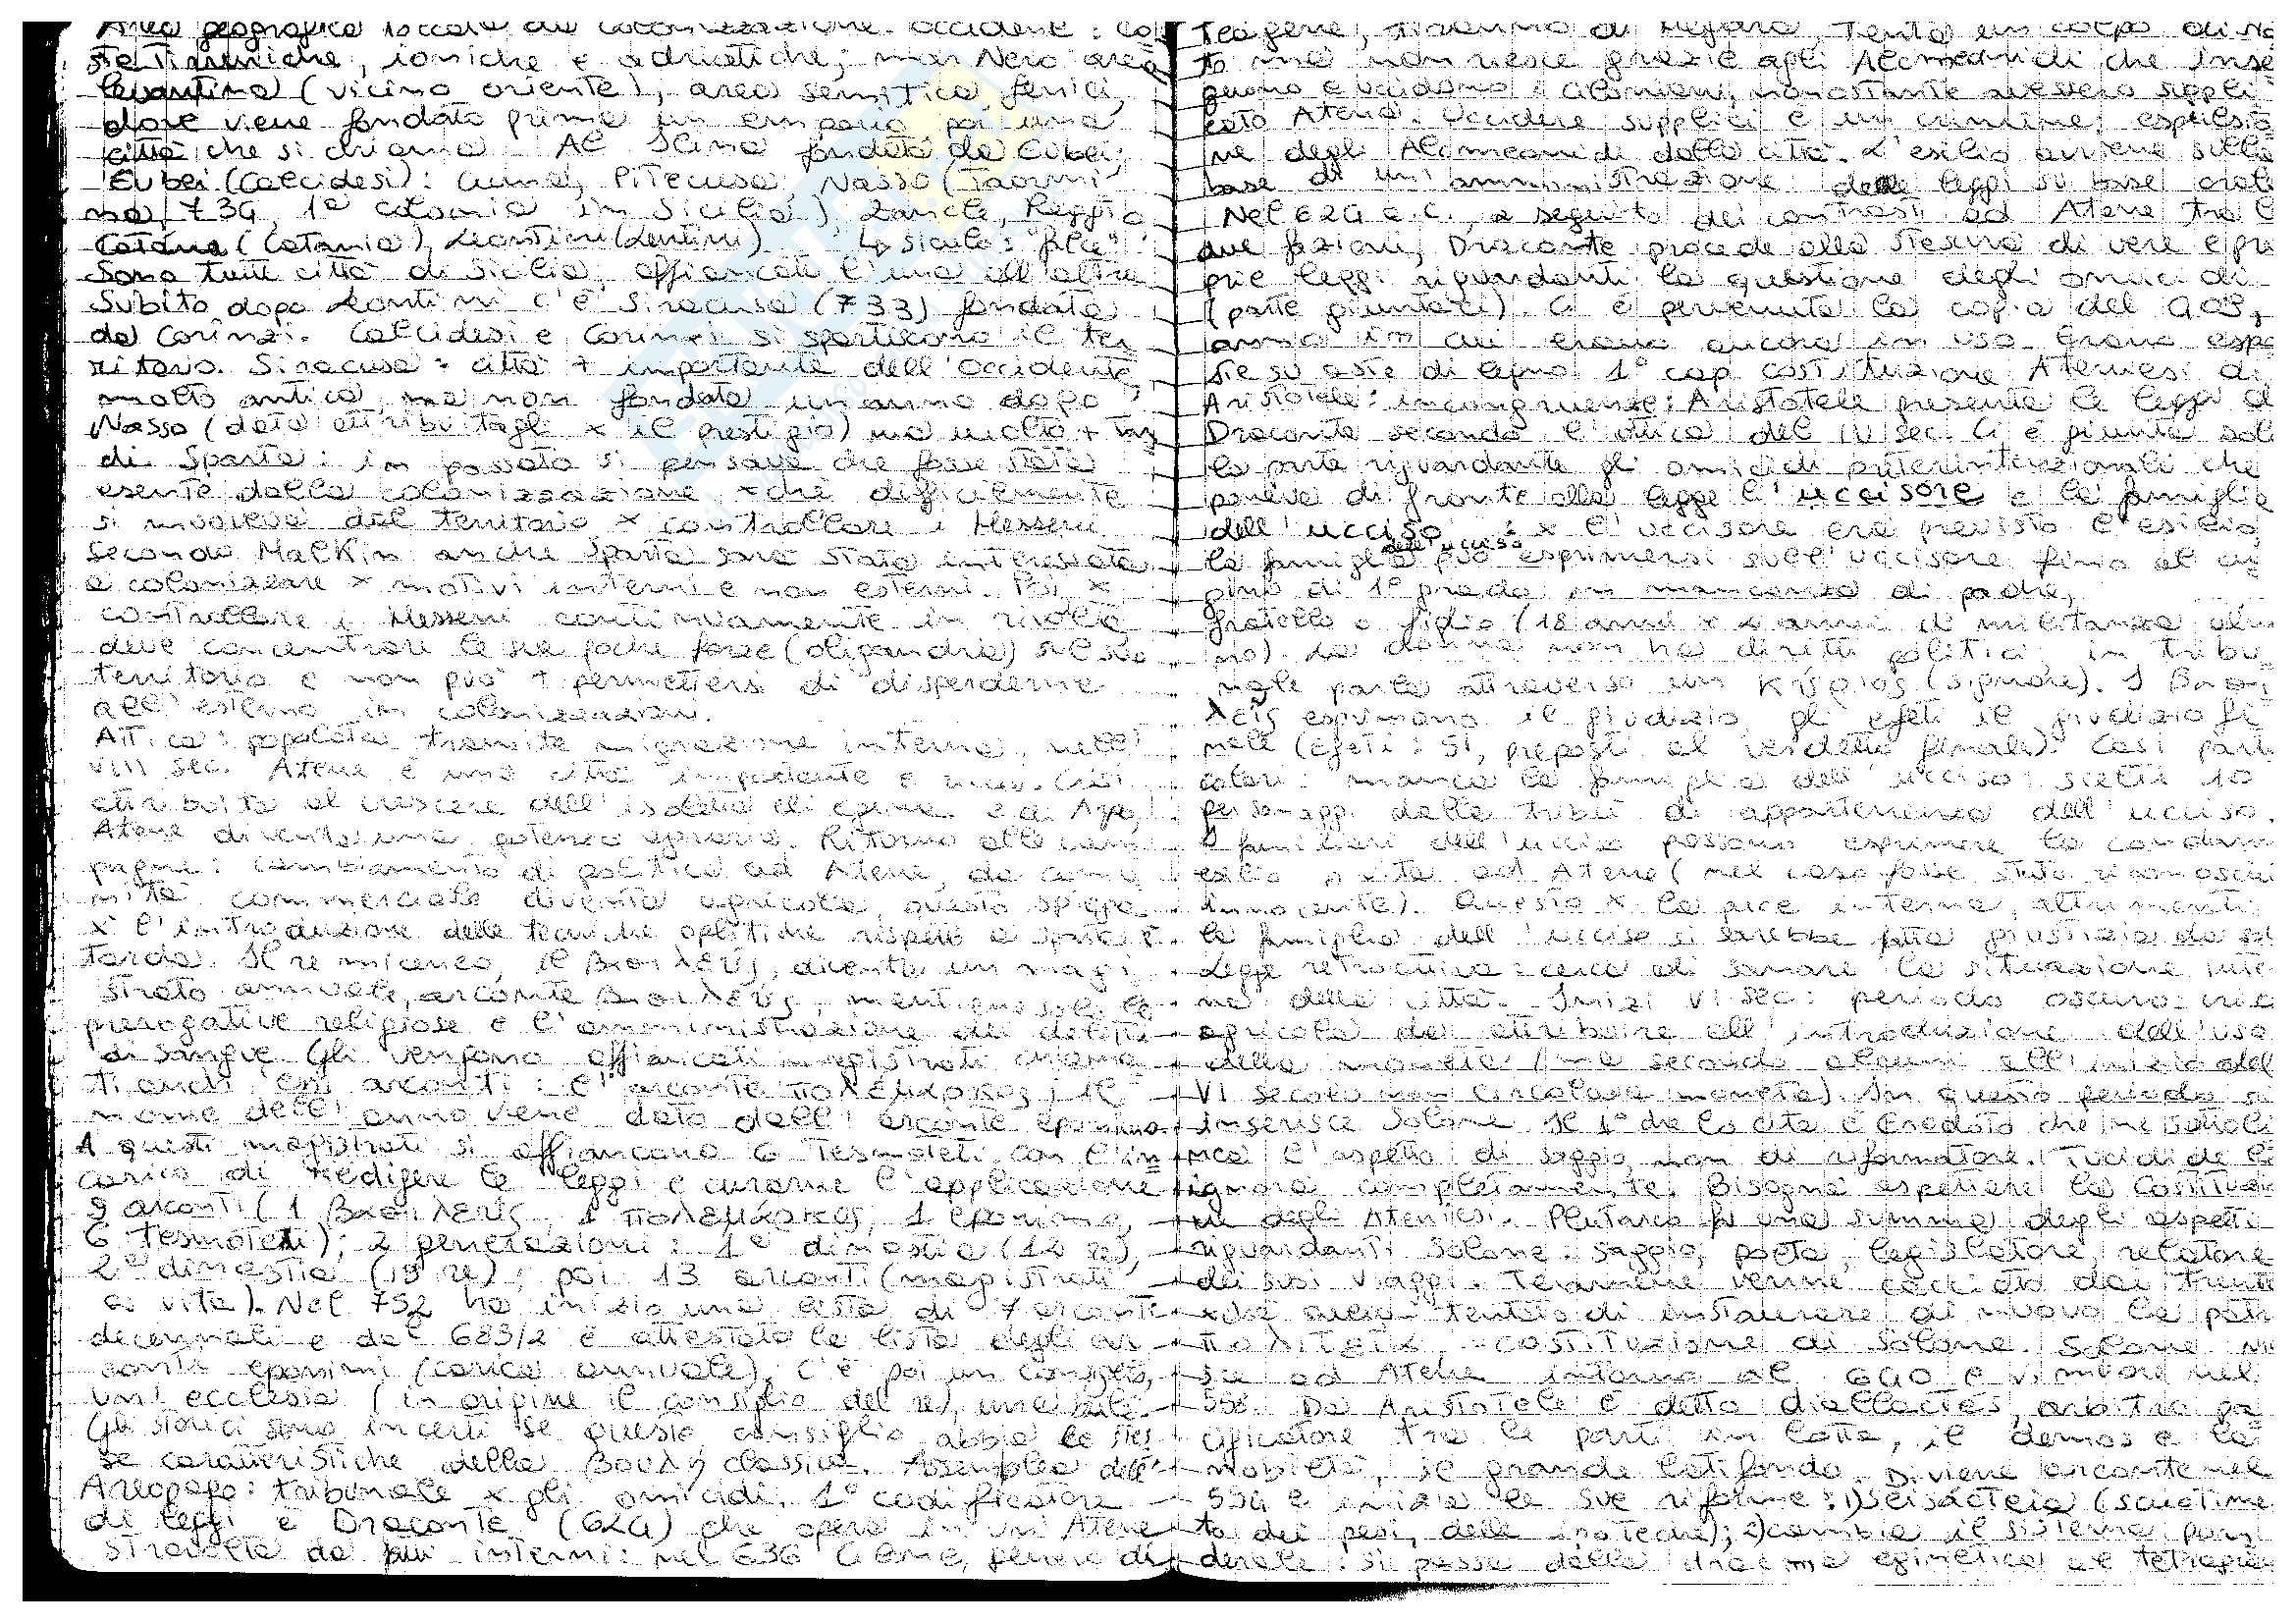 Area geografica toccata da colonizzazione occidente: co
ste tirreniche, ioniche e adriatiche; mar Nero area
levantina (vicino oriente), area semitica fenici,
dove viene fondato prima un emporio, poi una
città che si chiama Al Mina fondata da Eubei;
Eubei (Calcidesi): Cuma, Pitecusa Nasso (Taormi
na, 734, 1ª colonia in Sicilia), Zancle, Reggio
Catane (Catania), Leontini (Lentini). ↳ siculo: "falce"
Sono tutte città di Sicilia, affiancate l'una all'altra
Subito dopo Lentini c'è Siracusa (733) fondata
da Corinzi. Calcidesi e Corinzi si spartiscono il ter
ritorio. Siracusa = città + importante dell'occidente,
molto antica, ma non fondata un anno dopo
Nasso (data attribuitagli x il prestigio) ma molto +
di Sparta: in passato si pensava che fosse stata
esente dalla colonizzazione xchè difficilmente
si muoveva dal territorio x controllare i Messeni
secondo Malkin anche Sparta sarà stata interessata
a colonizzare x motivi interni e non esterni. Poi x
controllare i Messeni continuamente in rivolta
deve concentrare le sue poche forze (oligandria) sul suo
territorio e non può + permettersi di disperderne
all'esterno in colonizzazioni.
Attica: popolata tramite migrazione interna, nell'
VIII sec. Atene è una città importante e
attribuita al crescere dell'isoletta di Egina e di Argo,
Atene diventa una potenza agraria. Ritorno alle cam
pagne: cambiamento di politica ad Atene, da comu
nità commerciale diventa agricola, questo spiega
x l'introduzione delle tecniche oplitiche rispetto a Sparta è
tarda. Il re miceneo, il Βασιλεύς, diventa un magi
strato annuale, arconte Βασιλεύς, mantiene solo le
prerogative religiose e l'amministrazione dei delitti
di sangue. Gli vengono affiancati magistrati chiama
ti anch'essi arconti: l'arconte πολέμαρχος; il
nome dell'anno viene dato dall'arconte eponimo.
A questi magistrati si affiancano 6 Tesmoteti con l'in
carico di redigere le leggi e curarne l'applicazione
9 arconti (1 Βασιλεύς, 1 πολέμαρχος, 1 eponimo,
6 Tesmoteti); 2 generazioni: 1ª dinastia (12 re),
2ª dinastia (15 re); poi 13 arconti (magistrati
a vita). Nel 752 ha inizio una lista di 7 arconti
decennali e dal 683/2 è attestata la lista degli ar
conti eponimi (carica annuale), c'è poi un consiglio,
un'ecclesia (in origine il consiglio del re), una bulè.
Gli storici sono incerti se questo consiglio abbia le stes
se caratteristiche della Βουλή classica. Assemblea dell'
Areopago: tribunale x gli omicidi. 1° codificatore
di leggi è Draconte (624) che opera in un'Atene
stravolta da interni: nel 636 Cilone, genero di
Teagene, tiranno di Megara, tenta un colpo di sta
to ma non riesce grazie agli Alcmeonidi che inse
guono e uccidono i Ciloniani, nonostante avessero suppli
cato Atena. Uccidere supplici è un crimine; espulsio
ne degli Alcmeonidi dalla città. L'esilio avviene sulla
base di un'amministrazione delle leggi su base orale
Nel 624 a.C., a seguito dei contrasti ad Atene tra le
due fazioni, Draconte procede alla stesura di vere e pro
prie leggi riguardanti la questione degli omicidi
(parte giuntaci). Ci è pervenuta la copia del 409,
anno in cui erano ancora in uso. Erano espo
ste su aste di legno 1° cap costituzione Ateniesi di
Aristotele: incongruenze; Aristotele presenta le leggi di
Draconte secondo l'ottica del IV sec. Ci è giunta solo
la parte riguardante gli omicidi preterintenzionali che
poneva di fronte alla legge l'uccisore e la famiglia
dell'ucciso: x l'uccisore era previsto l'esilio,
la famiglia dell'ucciso può esprimersi sull'uccisore fino al cu
gino di 1° grado, in mancanza di padre,
fratello o figlio (18 anni + 2 anni di militanza
no). La donna non ha diritti politici, in tribu
nale parla attraverso un κύριος (signore). I Βασι
λεῖς esprimono il giudizio, gli efeti il giudizio fi
nale (efeti: 51, preposti al verdetto finale). Casi parti
colari: manca la famiglia dell'ucciso: scelti 10
personaggi della tribù di appartenenza dell'ucciso.
I familiari dell'ucciso possono esprimere la condan
esilio o vita ad Atene (nel caso fosse stato riconosciu
innocente). Questo x la pace interna, altrimenti
la famiglia dell'ucciso si sarebbe fatta giustizia da sé
Legge retroattiva: cerca di sanare la situazione inte
na della città. Inizi VI sec: periodo oscuro: crisi
agricola da attribuire all'introduzione dell'uso
della moneta (ma secondo alcuni all'inizio del
VI secolo non circolava moneta). In questo periodo si
inserisce Solone. Il 1° che lo cita è Erodoto che ne sottoli
nea l'aspetto di saggio, non di riformatore. Tucidide lo
ignora completamente. Bisogna aspettare la Costituzio
ne degli Ateniesi. Plutarco fa una summa degli aspetti
riguardanti Solone: saggio, poeta, legislatore, relatore
dei suoi viaggi. Teramene venne cacciato dai trenta
xchè aveva tentato di instaurare di nuovo la patr
πολιτεία = costituzione di Solone. Solone na
sce ad Atene intorno al 640 e vi muore nel
558. Da Aristotele è detto diallactes, arbitro pa
cificatore tra le parti in lotta, il demos e la
nobiltà, il grande latifondo. Diviene arconte nel
594 e inizia le sue riforme: 1) Seisácteia (scuotimen
to dei pesi, delle ipoteche); 2) cambia il sistema pon
derale: si passa dalla dracma eginetica al tetra